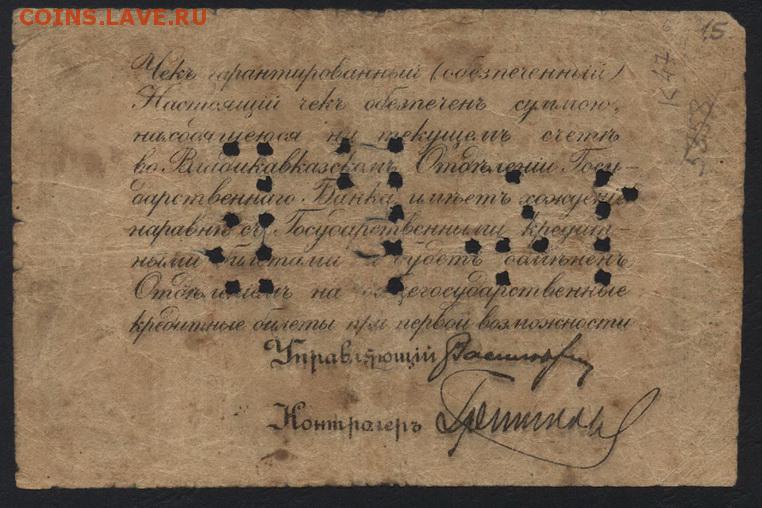 COINS.LAVE.RU
15.
К47
5858
Чекъ гарантированный (обезпеченный)
Настоящій чекъ обезпеченъ суммою,
находящеюся на текущемъ счетѣ
во Владикавказскомъ Отдѣленіи Госу-
дарственнаго Банка имѣетъ хожденіе
наравнѣ съ Государственными кредит-
ными билетами и будетъ обмѣненъ
Отдѣленіемъ на общегосударственные
кредитные билеты при первой возможности
Управляющій
Контролеръ